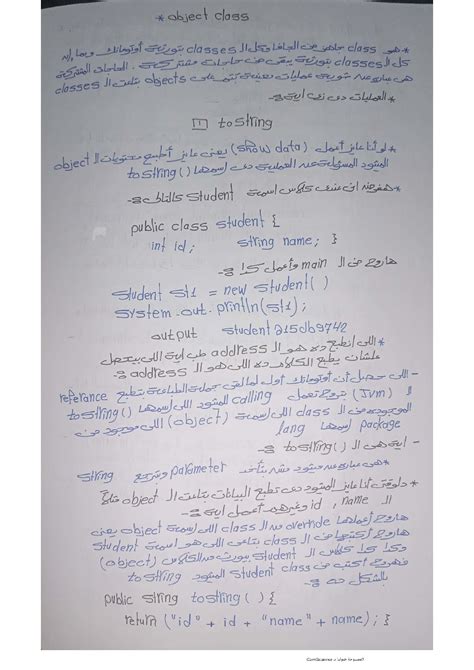 * object class
* هو class جاهز من الجافا وكل الـ classes بتورث منه أوتوماتك وبما إن
كل الـ classes بتورثه يبقى في حاجات مشتركة. الحاجات المشتركة
هي عبارة عن شوية عمليات معينة تتم على objects بتاعت الـ classes
* العمليات دي زي اية :-
1 toString
* لو أنا عايز أعمل (show data) يعني عايز أطبع محتويات الـ object
الميثود المسؤلة عن العملية دي اسمها toString()
* هفرض ان عندي كلاس اسمة Student كالتالي :-
public class student {
int id; string name; }
هاروح في الـ main وأعمل كدا :-
Student St1 = new Student()
System.out.println(St1);
output student215db9742
* اللي إنطبع ده هو الـ address طب اية اللي بيحصل
علشان يطبع الكلام ده اللي هو الـ address :-
- اللي حصل أن أوتوماتك أول لما تيجي جملة الطباعة تطبع referance
الـ (JVM) بتروح تعمل calling للميثود اللي اسمها toString()
الموجودة في الـ class اللي اسمة (object) اللي موجود في
package اسمها lang
- اية هي الـ toString() :-
* هي عبارة عن ميثود مش بتأخد parameter وبترجع string
* دلوقتي أنا عايز الميثود دي تطبع البيانات بتاعت الـ object مثلاً
الـ id , name وغيرهم أعمل اية :-
هاروح أعملها override من الـ class اللي اسمة object يعني
هاروح أكتبها في الـ class بتاعي اللي هو اسمة Student
وكدا كدا كلاس الـ Student بيورث من الكلاس (object)
فهروح أكتب في Student class الميثود toString
بالشكل ده :-
public String toString() {
return ("id" + id + "name" + name); }
الممسوحة ضوئيا بـ CamScanner